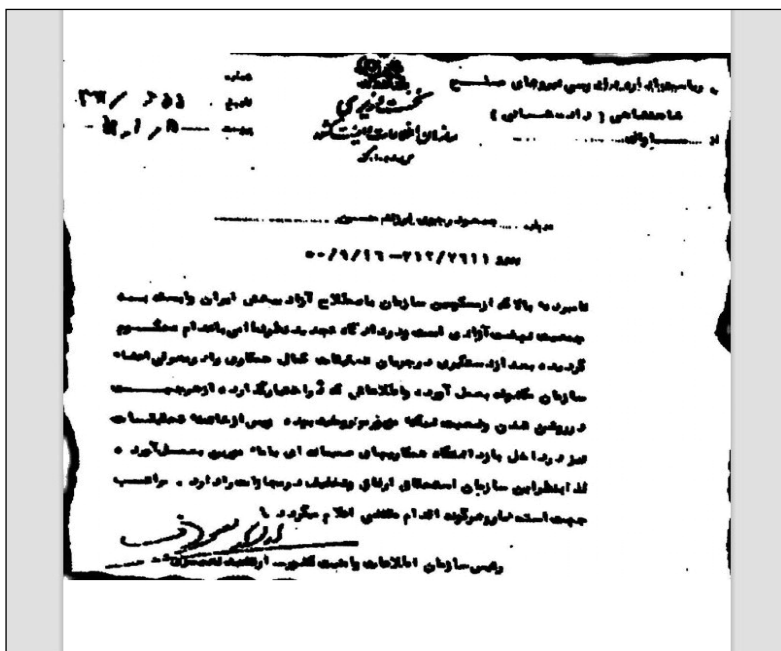 به ریاست اداره دادرسی نیروهای مسلح
شاهنشاهی ( دادستانی )
از ساواک
نخست وزیری
سازمان اطلاعات و امنیت کشور
س.ا.و.ا.ک
شماره
تاریخ
پیوست
درباره مسعود رجوی فرزند حسین
نامبرده بالا که از مسئولین سازمان باصطلاح آزادیبخش ایران وابسته به
جمعیت نهضت آزادی است و در دادگاه تجدید نظر نظامی باعدام محکوم
گردیده بعد از دستگیری در جریان تحقیقات کمال همکاری را در معرفی اعضاء
سازمان مکشوفه بعمل آورده و اطلاعاتی که در اختیار گذارده از هر جهت
در روشن شدن وضعیت شبکه مزبور موثر و مفید بوده و پس از خاتمه تحقیقات
نیز در داخل بازداشتگاه همکاریهای صمیمانه ای با مامورین بعمل آورده
لذا بنظر این سازمان استحقاق ارفاق و تخفیف در مجازات را دارد . مراتب
جهت استحضار و هرگونه اقدام مقتضی اعلام میگردد
رئیس سازمان اطلاعات و امنیت کشور . ارتشبد نصیری